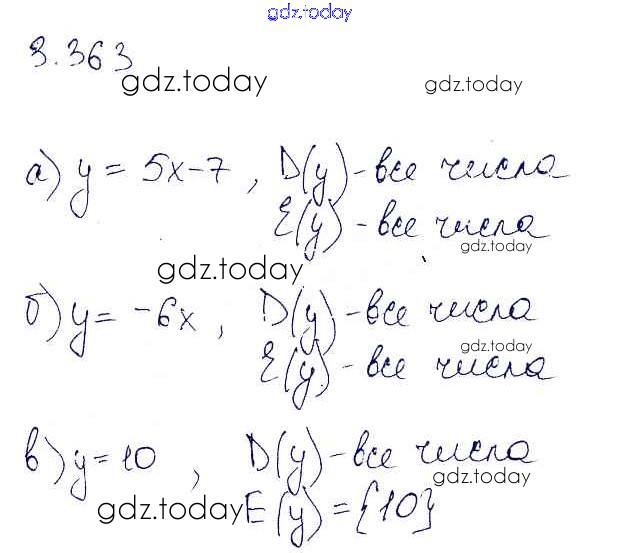 gdz.today
3.363
gdz.today gdz.today
а) y = 5x-7, D(y)-все числа
E(y)-все числа
gdz.today
gdz.today
б) y = -6x, D(y)-все числа
gdz.today
E(y)-все числа
в) y = 10, D(y)-все числа
gdz.today
gdz.today E(y) = {10}